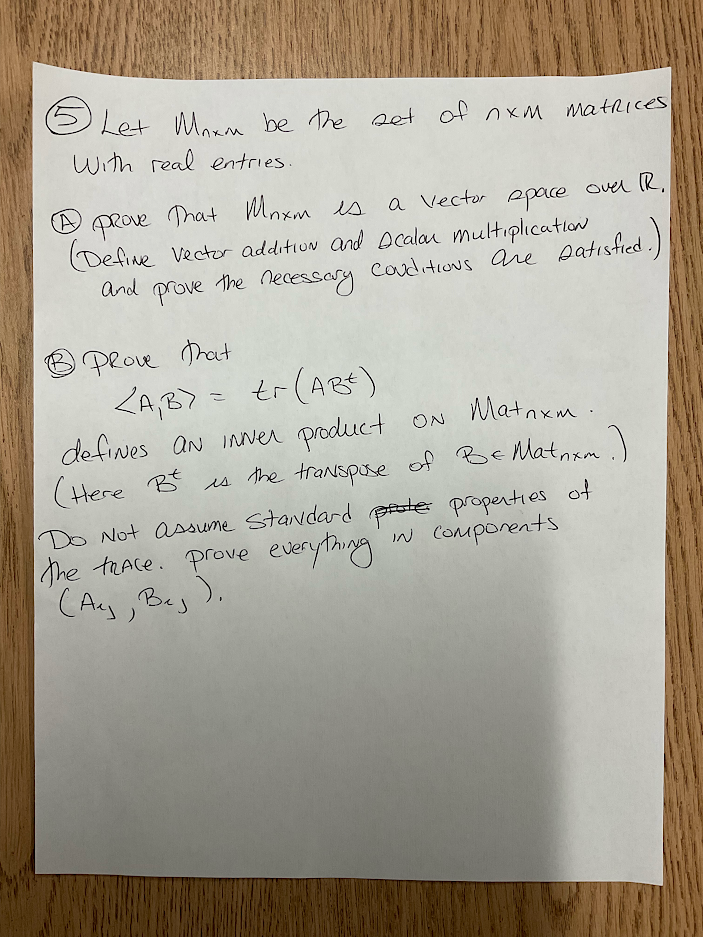 ⑤ Let Mnxm be the set of nxm matrices
With real entries.
Ⓐ prove that Mnxm is a vector space over ℝ.
(Define vector addition and scalar multiplication
and prove the necessary conditions are satisfied.)
Ⓑ prove that
<A,B> = tr(ABᵗ)
defines an inner product on Matnxm.
(Here Bᵗ is the transpose of B∈Matnxm.)
Do Not assume standard properties of
the trace. prove everything in components
(Aij, Bij).